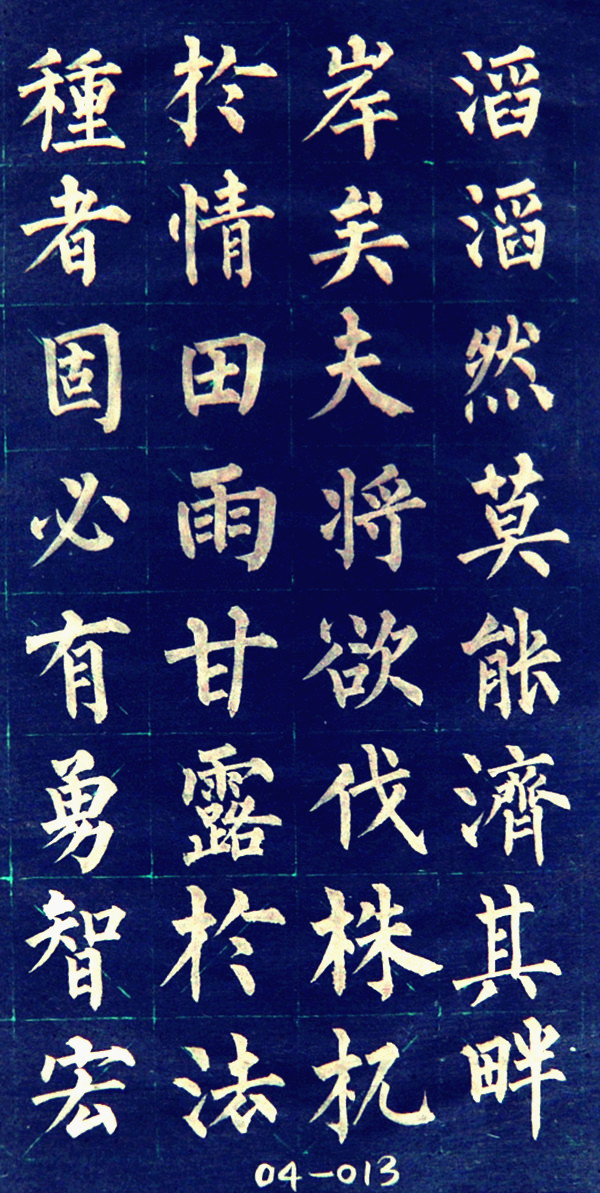 滔滔然莫能濟其畔
岸矣夫将欲伐株杌
於情田雨甘露於法
種者固必有勇智宏
04-013